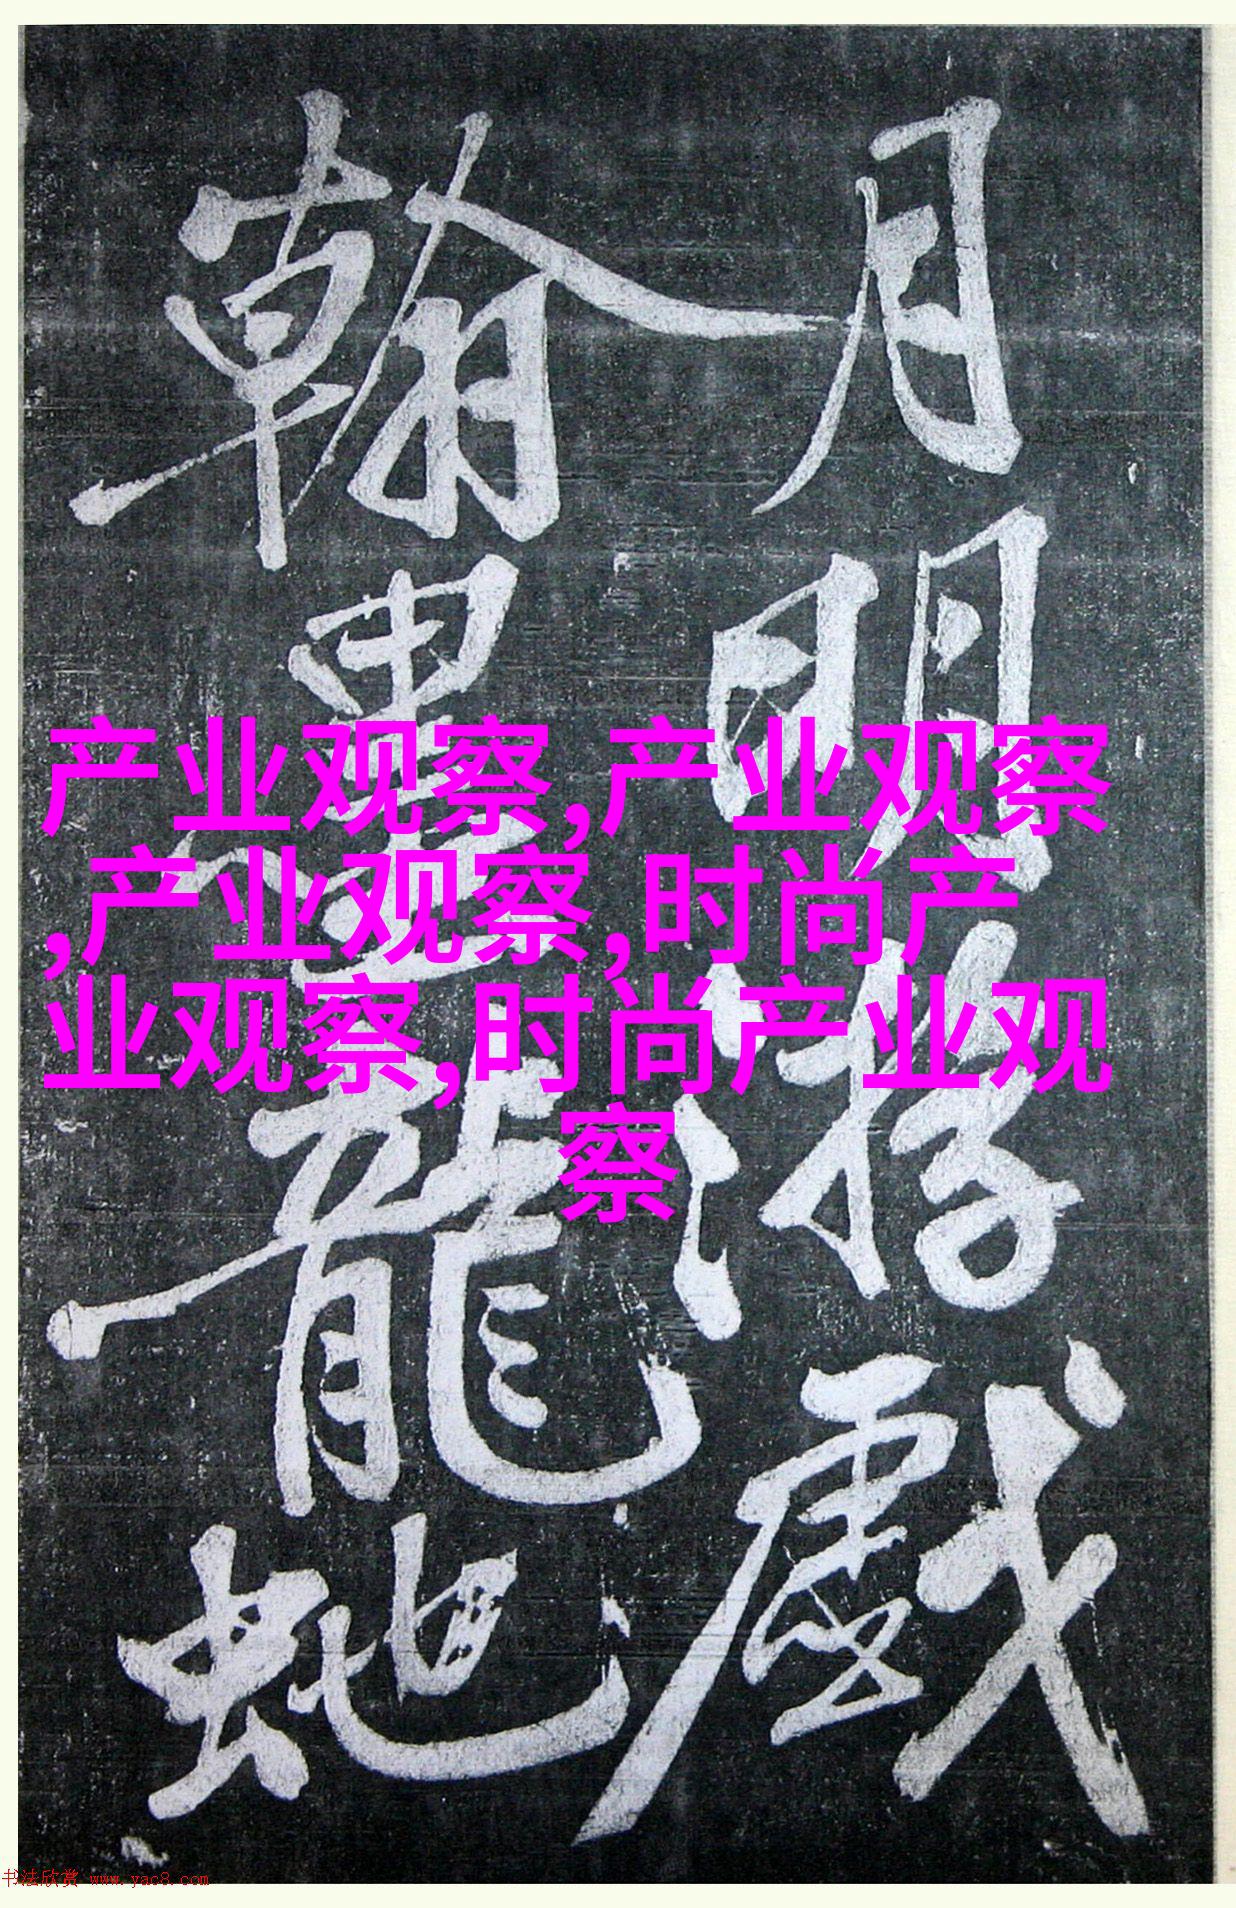 月明游戲
翰墨龍蛇
产业观察,产业观察
,产业观察,时尚产
业观察,时尚产业观
察
书法欣赏 www.yac8.com